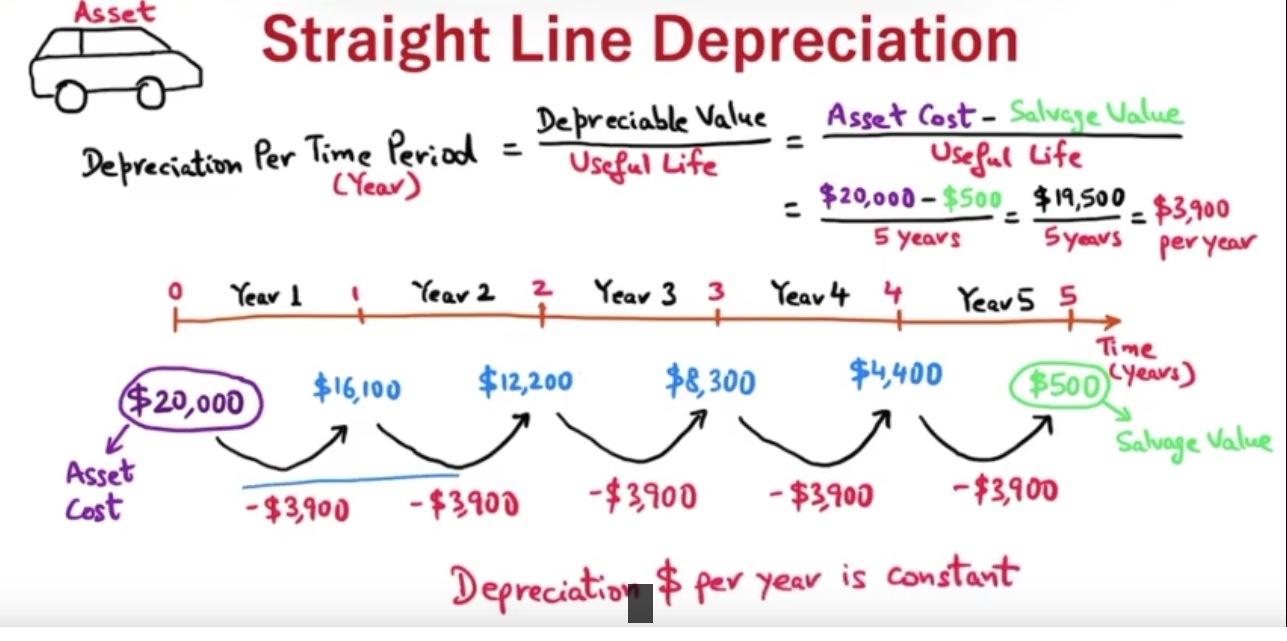 Asset
Straight Line Depreciation
Depreciation Per Time Period = Depreciable Value / Useful Life = Asset Cost - Salvage Value / Useful Life
(Year)
= $20,000 - $500 / 5 years = $19,500 / 5 years = $3,900 per year
0 Year 1 1 Year 2 2 Year 3 3 Year 4 4 Year 5 5
Time (years)
$20,000 $16,100 $12,200 $8,300 $4,400 $500
Asset Cost
Salvage Value
-$3,900 -$3,900 -$3,900 -$3,900 -$3,900
Depreciation $ per year is constant